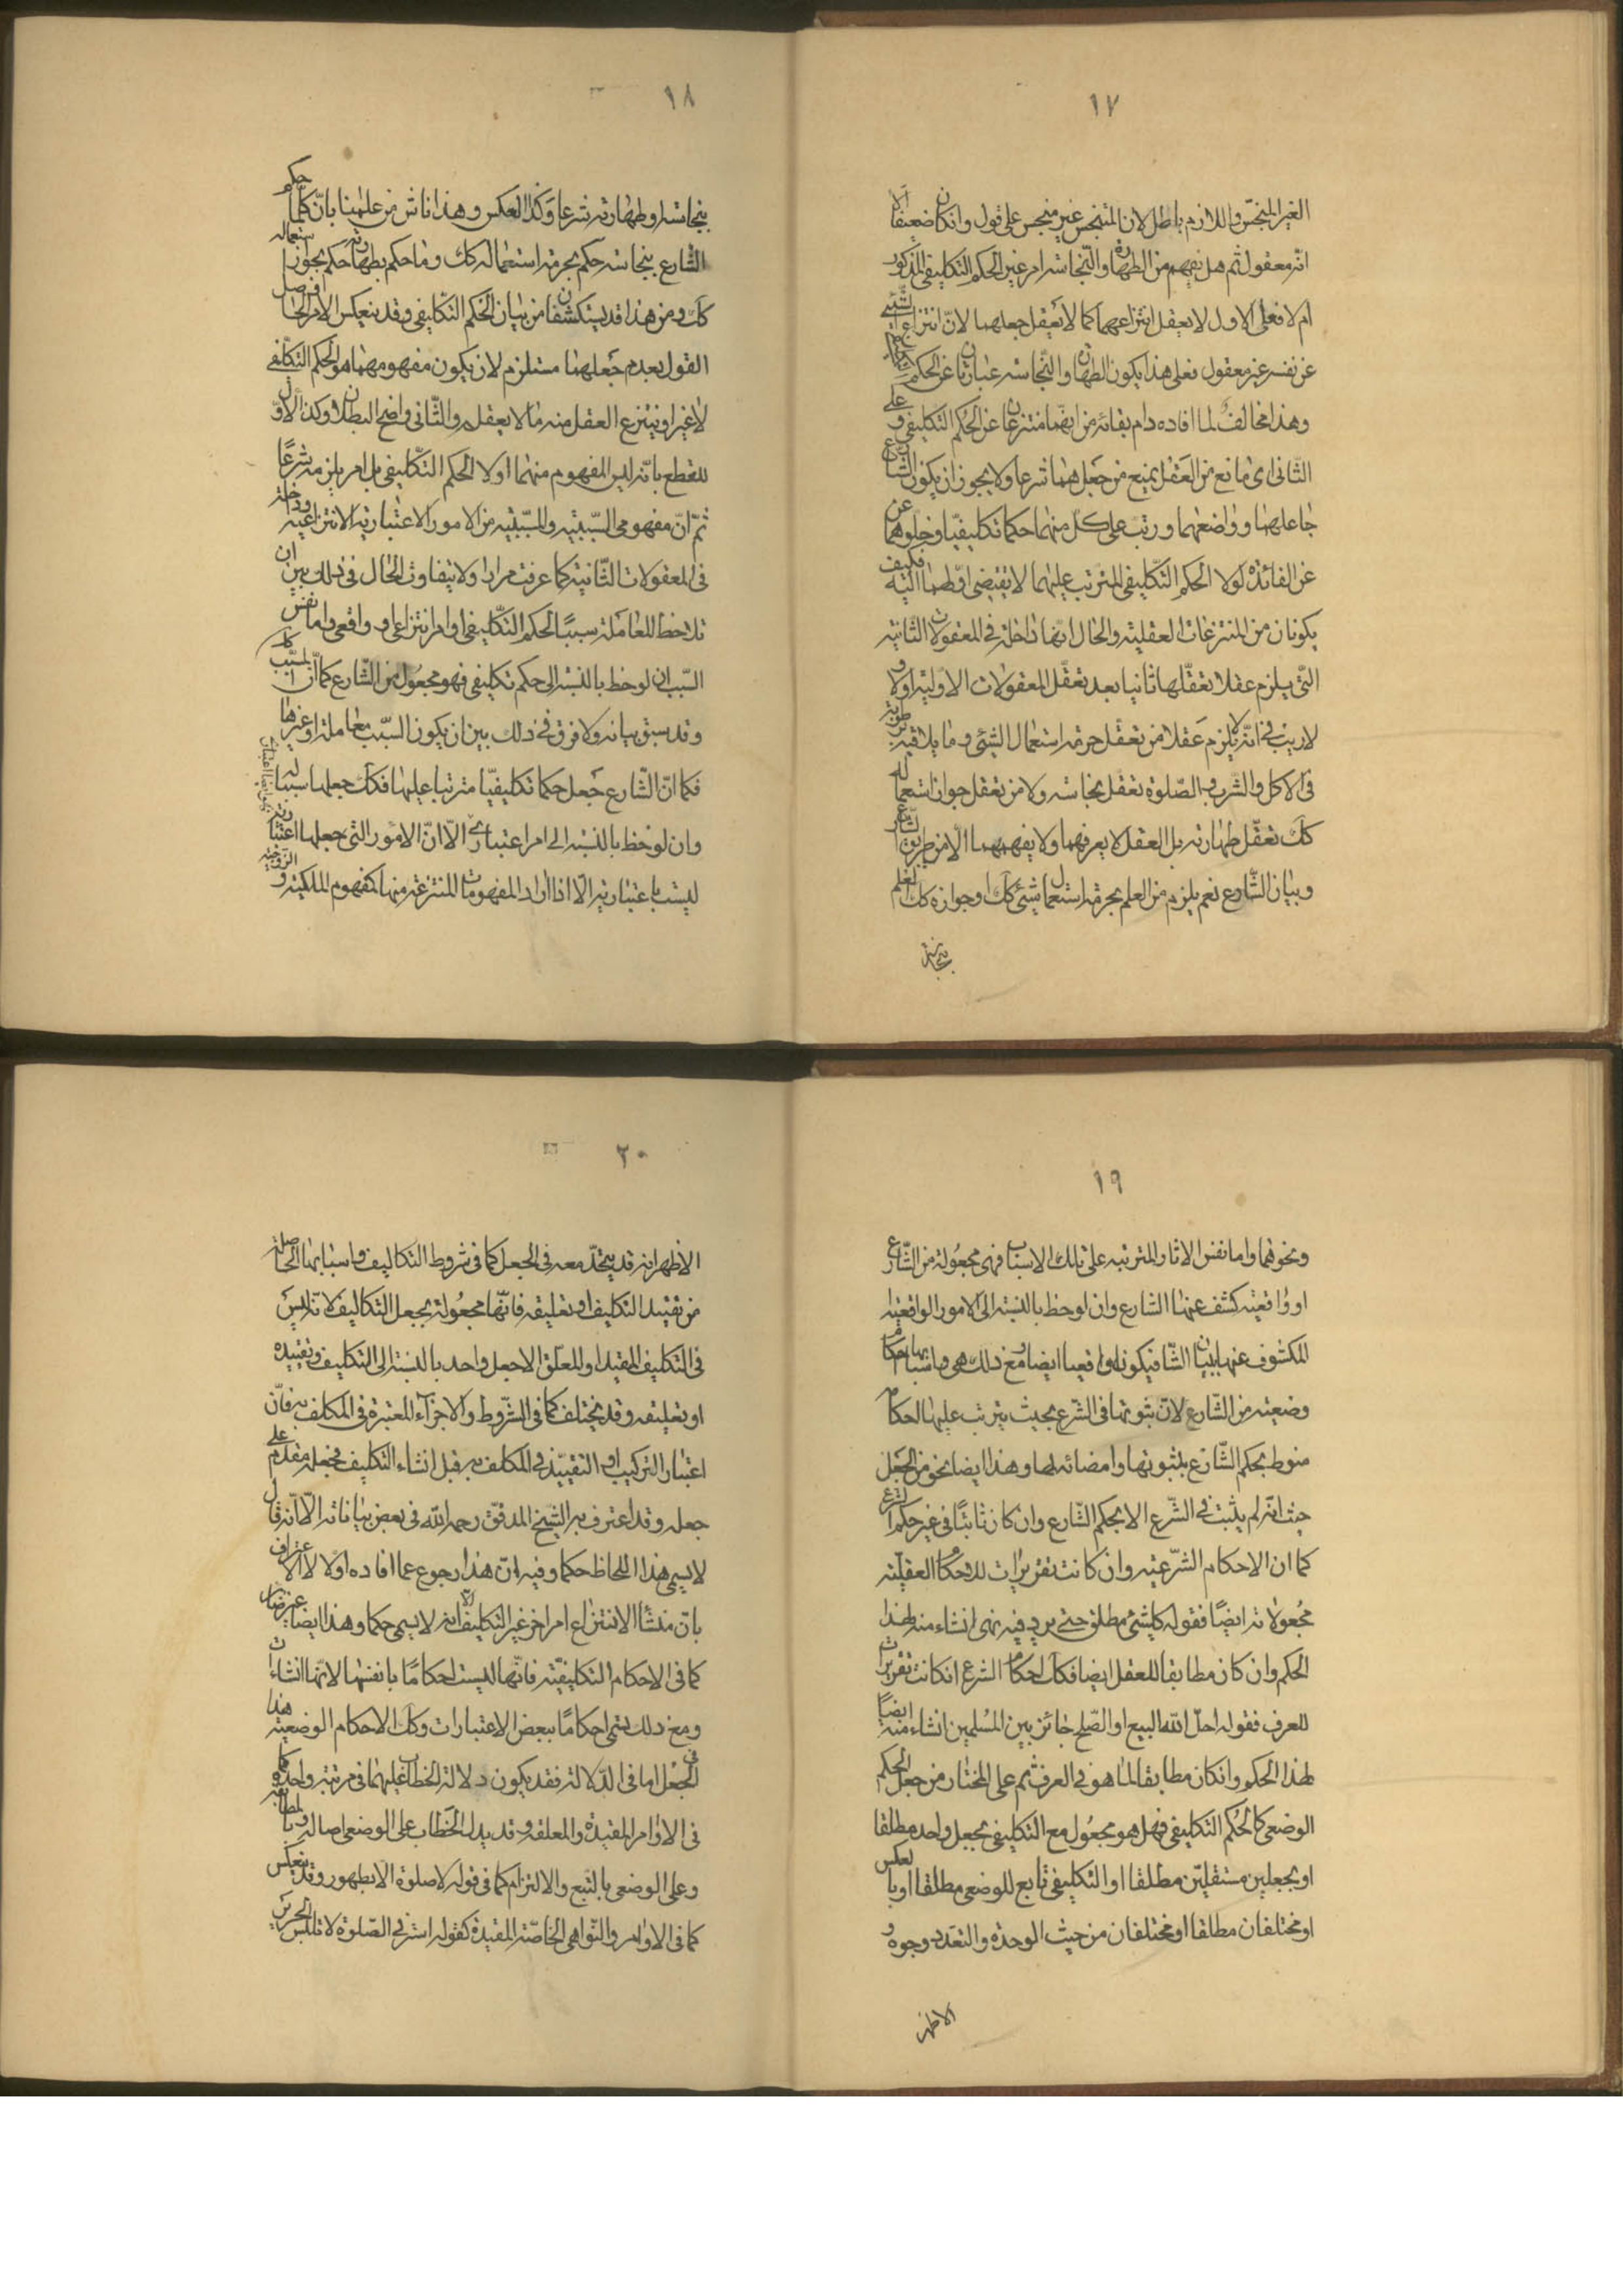 ١٧
الغير المنجس واللازم باطل لان المتنجس غير منجس على قول وان كان ضعيفا الا
انه معقول ثم هل يفهم من الطهارة والنجاسة امر غير الحكم التكليفى المذكور
ام لا فعلى الاول لا يعقل انتزاعهما كما لا يعقل جعلهما لان انتزاع الشئ
عن نفسه غير معقول فعلى هذا يكون الطهارة والنجاسة عبارتان عن الحكم
وهذا مخالف لما افاده دام بقائه من انهما منتزعان عن الحكم التكليفى وعلى
الثانى اى مانع من العقل يمنع من جعلهما شرعا ولا يجوز ان يكون الشارع
جاعلهما وواضعهما ورتب على كل منهما حكما تكليفيا وخلوهما عن
عن الفائدة لولا الحكم التكليفى المترتب عليهما لا يقتضى فكيف
يكونان من المنتزعات العقلية والحال انها داخلة فى المعقولات الثانية
التى يلزم عقلا تعقلها ثانيا بعد تعقل المعقولات الاولية اولا و
لا ريب فى انه لا يلزم عقلا من تعقل حرمة استعمال الشئ وما يلاقيه برطوبة
فى الاكل والشرب والصلوة تعقل نجاسته ولا من تعقل جواز استعماله
كك تعقل طهارته بل العقل لا يعرفهما ولا يفهمهما الا من طريق الشارع
وبيان الشارع نعم يلزم من العلم بحرمة استعمال شئ كك او جوازه كك العلم
بنجاسته
١٨
بنجاسته او طهارته شرعا وكذا العكس وهذا ناش من علمنا بان كلما حكم
الشارع بنجاسته حكم بحرمة استعماله كك وما حكم بطهارته حكم بجواز استعماله
كك ومن هذا قد يستكشفان من بيان الحكم التكليفى وقد ينعكس الامر فحاصل
القول بعدم جعلهما مستلزم لان يكون مفهومهما هو الحكم التكليفى
لا غير او ينتزع العقل منه ما لا يعقله والثانى واضح البطلان وكذا الاول
للقطع بانه ليس المفهوم منهما اولا الحكم التكليفى بل امر يلزمه شرعا
ثم ان مفهومى السببية والمسببية من الامور الاعتبارية الانتزاعية وداخلة
فى المعقولات الثانية كما عرفت مرارا ولا يتفاوت الحال فى ذلك بين ان
تلاحظ المعاملة سببا لحكم التكليفى او امر انتزاعى او واقعى واما نفس
السبب ان لوحظ بالنسبة الى حكم تكليفى فهو مجعول من الشارع كما ان المسبب كك
وقد سبق بيانه ولا فرق فى ذلك بين ان يكون السبب معاملة او غيرها
فكما ان الشارع جعل حكما تكليفيا مترتبا عليها فكك جعلها سببا له
وان لوحظ بالنسبة الى امر اعتبارى الا ان الامور التى جعلها اعتبارية
ليست باعتبارية الا اذا اراد المفهومات المنتزعة منها كمفهوم الملكية والزوجية
١٩
ونحوهما واما نفس الاثار المترتبه على تلك الاسباب فهى مجعولة من الشارع
او واقعية كشف عنها الشارع وان لوحظ بالنسبة الى الامور الواقعية
المكشوف عنها ببيان الشارع فيكونان واقعيا ايضا ومع ذلك هى واسبابها احكام
وضعية من الشارع لان ثبوتها فى الشرع بحيث يترتب عليها الاحكام
منوط بحكم الشارع بثبوتها وامضائه لها وهذا ايضا نحو من الجعل
حيث انه لم يثبت فى الشرع الا بحكم الشارع وان كان ثابتا فى غير حكم الشرع
كما ان الاحكام الشرعية وان كانت تقريرات للاحكام العقلية
مجعولاته ايضا فقوله كل شئ مطلق حتى يرد فيه نهى انشاء منه لهذا
الحكم وان كان مطابقا للعقل ايضا فكك احكام الشرع ان كانت تقريرات
للعرف فقوله احل الله البيع او الصلح جائز بين المسلمين انشاء منه ايضا
لهذا الحكم وان كان مطابقا لما هو فى العرف ثم على المختار من جعل الحكم
الوضعى كالحكم التكليفى فهل هو مجعول مع التكليفى بجعل واحد مطلقا
او بجعلين مستقلين مطلقا او التكليفى تابع للوضعى مطلقا او بالعكس
او مختلفان مطلقا او مختلفان من حيث الوحدة والتعدد وجوه و
الاظهر
٢٠
الاظهر انه قد يتحد معه فى الجعل كما فى شروط التكاليف واسبابها الحاصلة
من تقييد التكليف او تعليقه فانها مجعولة بجعل التكاليف لانه ليس
فى التكليف المقيد او المعلق الا جعل واحد بالنسبة الى التكليف وتقييده
او تعليقه وقد يختلف كما فى الشروط والاجزاء المعتبرة فى المكلف به فان
اعتبار التركيب او التقييد فى المكلف به قبل انشاء التكليف فجعله مقدم على
جعله وقد اعترف به الشيخ المدقق رحمه الله فى بعض بياناته الا انه قال
لا يسمى هذا اللحاظ حكما وفيه ان هذا رجوع عما افاده اولا لاعتراف
بان منشأ الانتزاع امر اخر غير التكليف الا انه لا يسمى حكما وهذا ايضا غير ضار
كما فى الاحكام التكليفية فانها ليست احكاما بانفسها لانها انشاءات
ومع ذلك يسمى احكاما ببعض الاعتبارات وكك الاحكام الوضعية هذا
فى الجعل اما فى الدلالة فقد يكون دلالة الخطاب عليهما فى مرتبة واحدة كما
فى الاوامر المقيدة والمعلقة وقد يدل الخطاب على الوضعى اصالة وبالمطابقة
وعلى الوضعى بالتبع والالتزام كما فى قوله لا صلوة الا بطهور وقد ينعكس
كما فى الاوامر والنواهى الخاصة المقيدة كقوله استر فى الصلوة لا تلبس الحرير